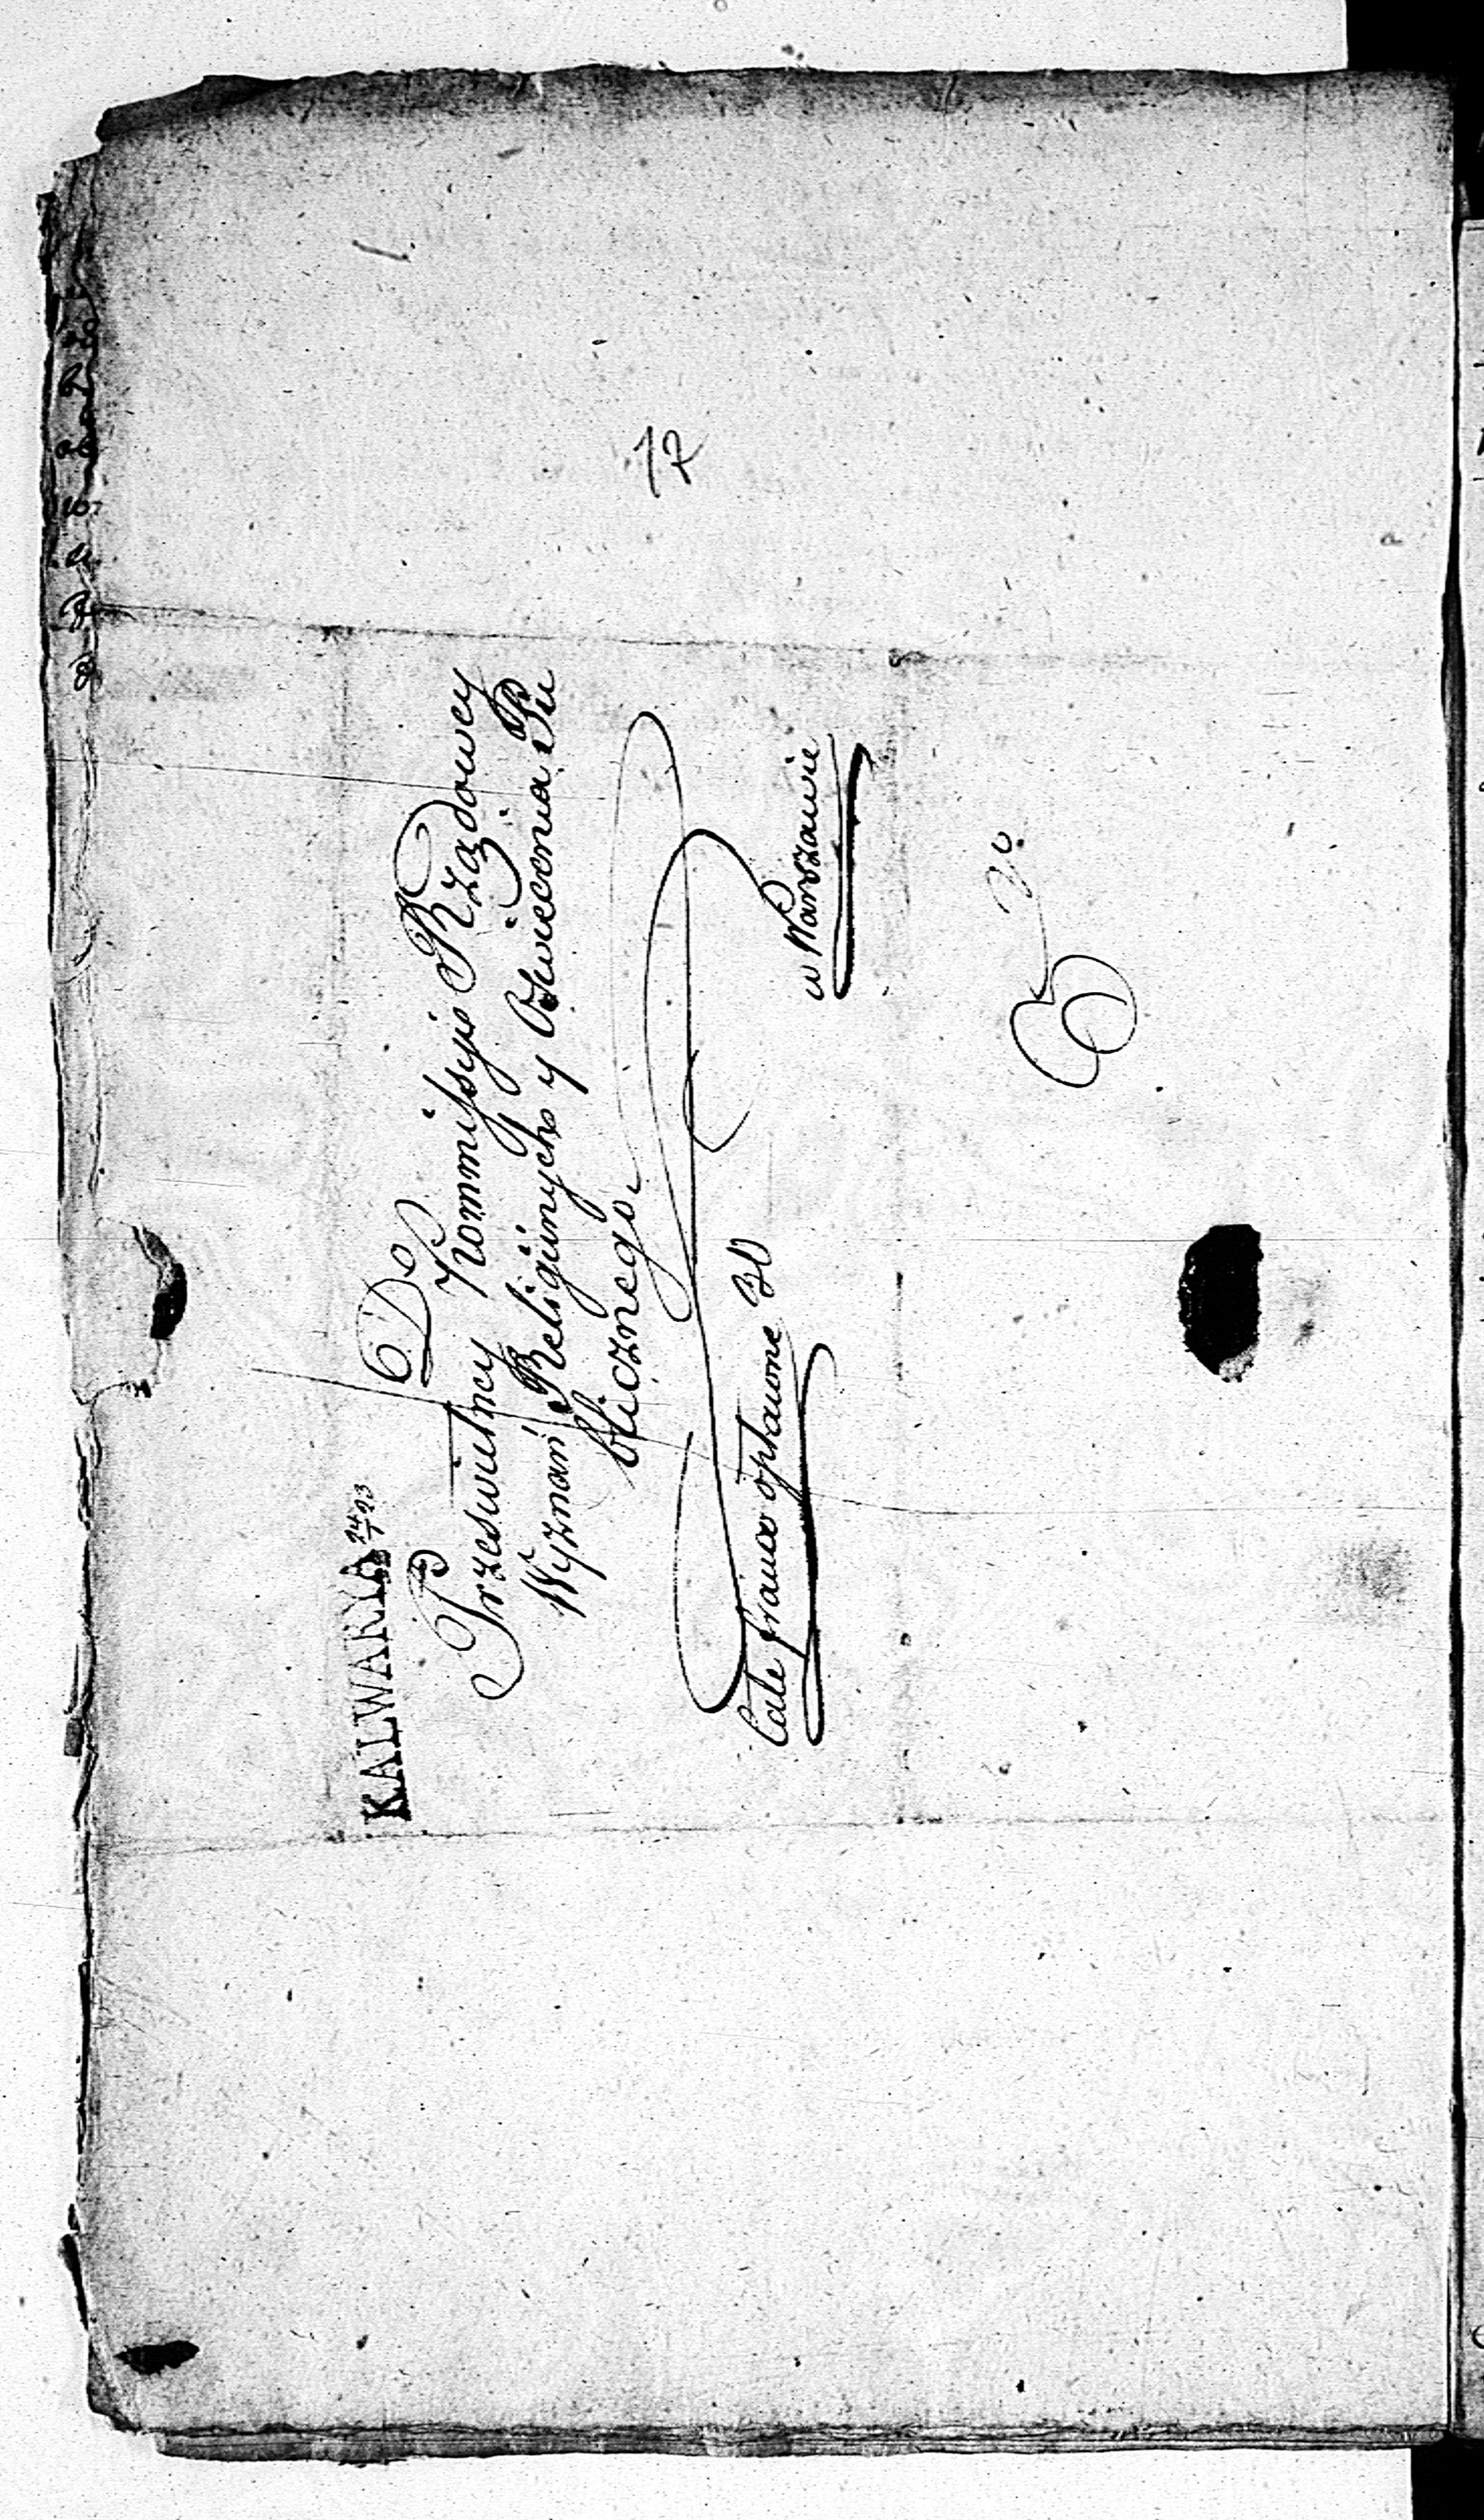 KALWARYA 24/1 23
Do
Prześwietney Kommissyi Rządowey
Wyznań Religiinych y Oświecenia Pu
blicznego.
w Warszawie
Całe franco opłacone 30
17